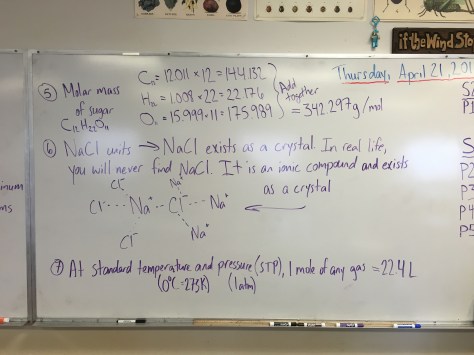 if the Wind Sto
Thursday, April 21, 201
⑤ Molar mass of sugar C₁₂H₂₂O₁₁
C₁₂ = 12.011 × 12 = 144.132
H₂₂ = 1.008 × 22 = 22.176
O₁₁ = 15.999 × 11 = 175.989
Add together
= 342.297 g/mol
⑥ NaCl units → NaCl exists as a crystal. In real life,
you will never find NaCl. It is an ionic compound and exists
as a crystal
Cl⁻ Na⁺
Cl⁻ Na⁺ Cl⁻ Na⁺
Cl⁻ Na⁺
⑦ At standard temperature and pressure (STP), 1 mole of any gas = 22.4 L
(0°C = 273K) (1 atm)
S
P2
P3
P4
P5